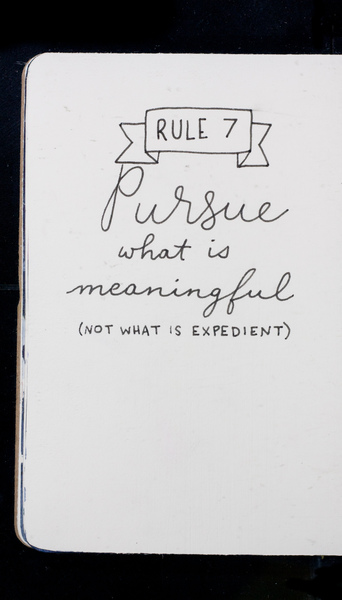 RULE 7
Pursue
what is
meaningful
(NOT WHAT IS EXPEDIENT)